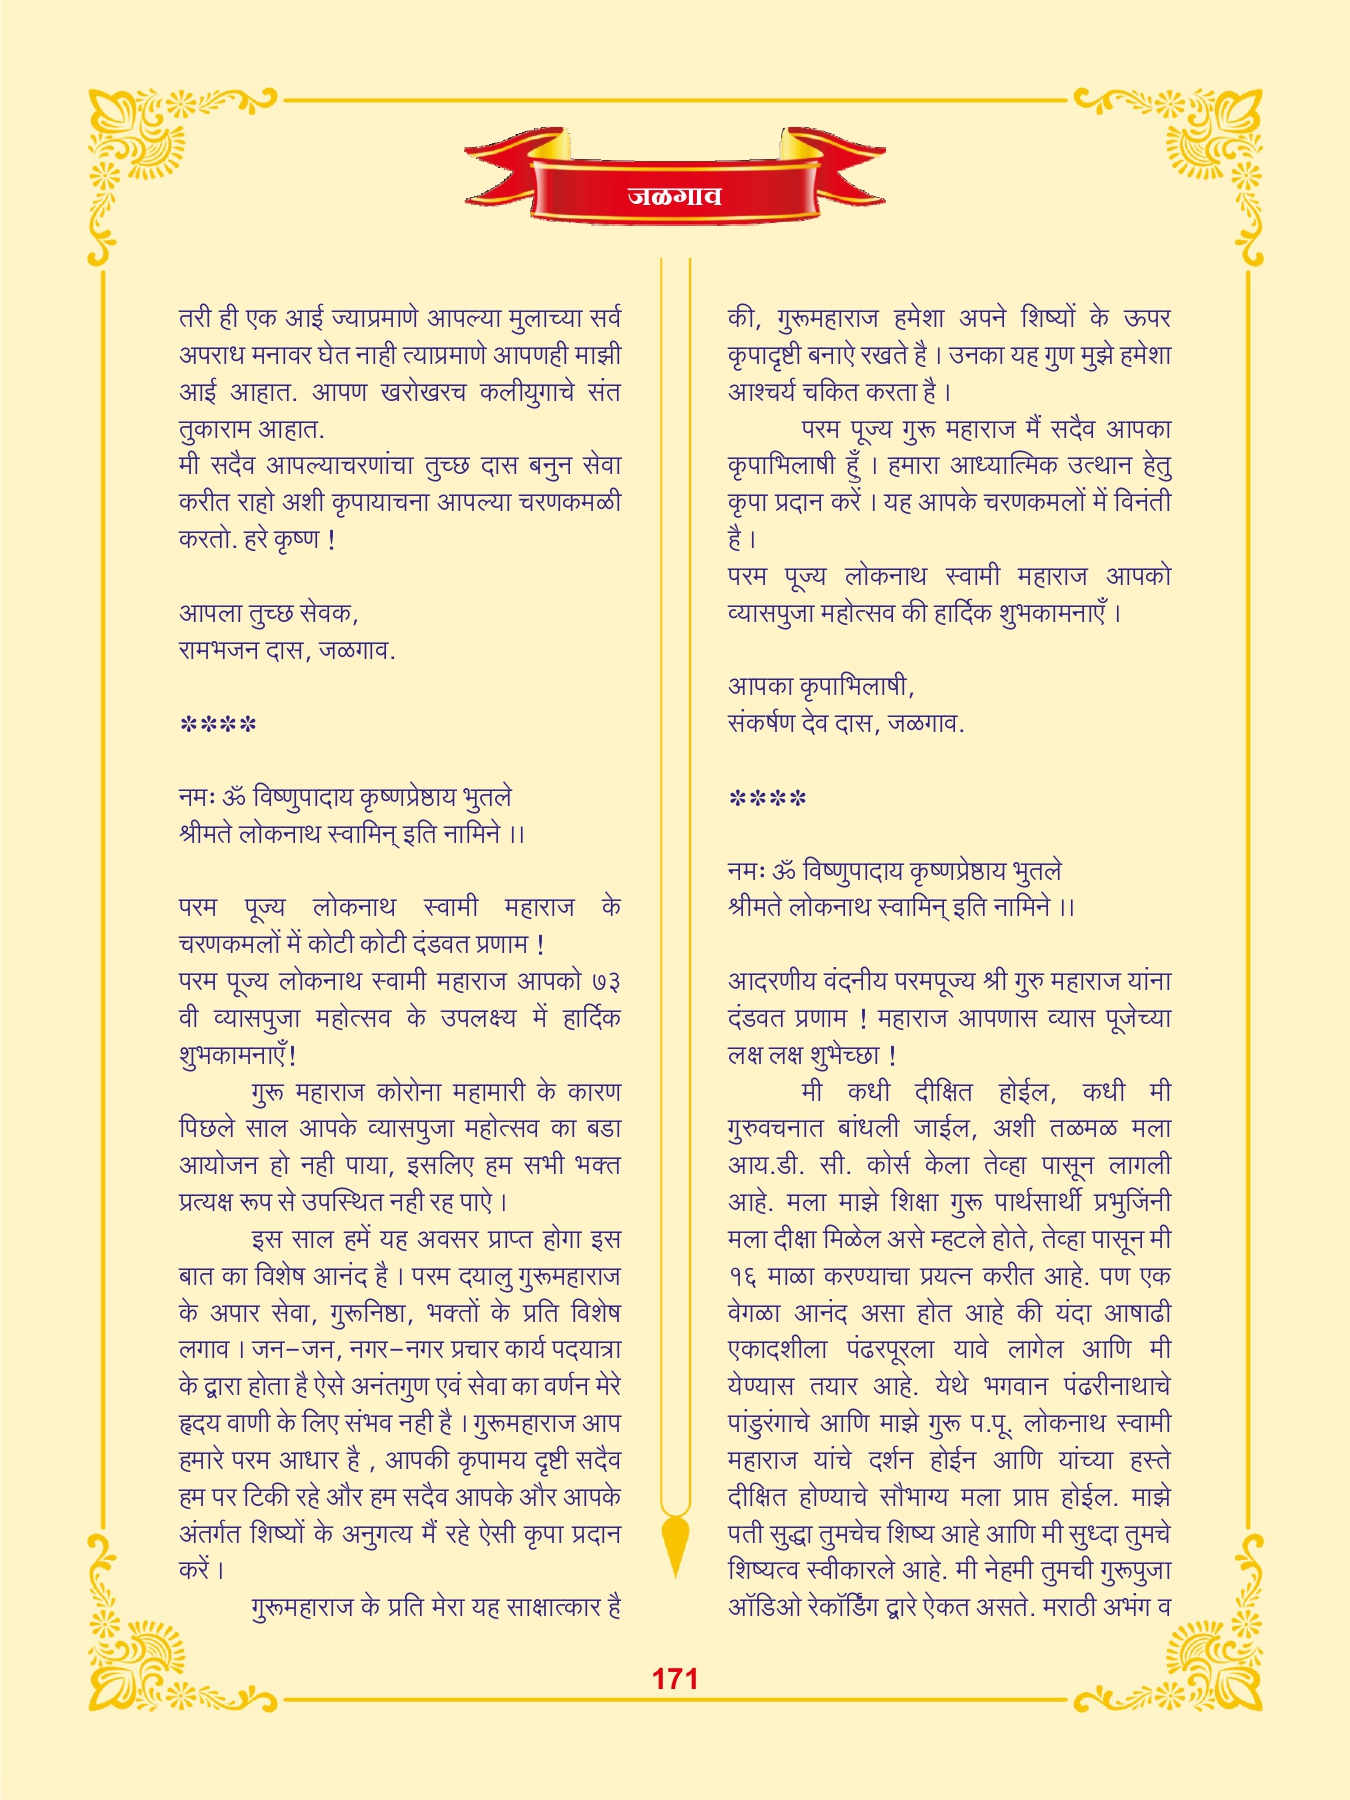 जळगाव
तरी ही एक आई ज्याप्रमाणे आपल्या मुलाच्या सर्व
अपराध मनावर घेत नाही त्याप्रमाणे आपणही माझी
आई आहात. आपण खरोखरच कलीयुगाचे संत
तुकाराम आहात.
मी सदैव आपल्याचरणांचा तुच्छ दास बनुन सेवा
करीत राहो अशी कृपायाचना आपल्या चरणकमळी
करतो. हरे कृष्ण !
आपला तुच्छ सेवक,
रामभजन दास, जळगाव.
****
नमः ॐ विष्णुपादाय कृष्णप्रेष्ठाय भुतले
श्रीमते लोकनाथ स्वामिन् इति नामिने ।।
परम पूज्य लोकनाथ स्वामी महाराज के
चरणकमलों में कोटी कोटी दंडवत प्रणाम !
परम पूज्य लोकनाथ स्वामी महाराज आपको ७३
वी व्यासपुजा महोत्सव के उपलक्ष्य में हार्दिक
शुभकामनाएँ!
गुरू महाराज कोरोना महामारी के कारण
पिछले साल आपके व्यासपुजा महोत्सव का बडा
आयोजन हो नही पाया, इसलिए हम सभी भक्त
प्रत्यक्ष रूप से उपस्थित नही रह पाऐ ।
इस साल हमें यह अवसर प्राप्त होगा इस
बात का विशेष आनंद है । परम दयालु गुरूमहाराज
के अपार सेवा, गुरूनिष्ठा, भक्तों के प्रति विशेष
लगाव । जन–जन, नगर–नगर प्रचार कार्य पदयात्रा
के द्वारा होता है ऐसे अनंतगुण एवं सेवा का वर्णन मेरे
हृदय वाणी के लिए संभव नही है । गुरूमहाराज आप
हमारे परम आधार है , आपकी कृपामय दृष्टी सदैव
हम पर टिकी रहे और हम सदैव आपके और आपके
अंतर्गत शिष्यों के अनुगत्य मैं रहे ऐसी कृपा प्रदान
करें ।
गुरूमहाराज के प्रति मेरा यह साक्षात्कार है
की, गुरूमहाराज हमेशा अपने शिष्यों के ऊपर
कृपादृष्टी बनाऐ रखते है । उनका यह गुण मुझे हमेशा
आश्चर्य चकित करता है ।
परम पूज्य गुरू महाराज मैं सदैव आपका
कृपाभिलाषी हुँ । हमारा आध्यात्मिक उत्थान हेतु
कृपा प्रदान करें । यह आपके चरणकमलों में विनंती
है ।
परम पूज्य लोकनाथ स्वामी महाराज आपको
व्यासपुजा महोत्सव की हार्दिक शुभकामनाएँ ।
आपका कृपाभिलाषी,
संकर्षण देव दास, जळगाव.
****
नमः ॐ विष्णुपादाय कृष्णप्रेष्ठाय भुतले
श्रीमते लोकनाथ स्वामिन् इति नामिने ।।
आदरणीय वंदनीय परमपूज्य श्री गुरु महाराज यांना
दंडवत प्रणाम ! महाराज आपणास व्यास पूजेच्या
लक्ष लक्ष शुभेच्छा !
मी कधी दीक्षित होईल, कधी मी
गुरुवचनात बांधली जाईल, अशी तळमळ मला
आय.डी. सी. कोर्स केला तेव्हा पासून लागली
आहे. मला माझे शिक्षा गुरू पार्थसार्थी प्रभुजिंनी
मला दीक्षा मिळेल असे म्हटले होते, तेव्हा पासून मी
१६ माळा करण्याचा प्रयत्न करीत आहे. पण एक
वेगळा आनंद असा होत आहे की यंदा आषाढी
एकादशीला पंढरपूरला यावे लागेल आणि मी
येण्यास तयार आहे. येथे भगवान पंढरीनाथाचे
पांडुरंगाचे आणि माझे गुरू प.पू. लोकनाथ स्वामी
महाराज यांचे दर्शन होईन आणि यांच्या हस्ते
दीक्षित होण्याचे सौभाग्य मला प्राप्त होईल. माझे
पती सुद्धा तुमचेच शिष्य आहे आणि मी सुध्दा तुमचे
शिष्यत्व स्वीकारले आहे. मी नेहमी तुमची गुरूपुजा
ऑडिओ रेकॉर्डिंग द्वारे ऐकत असते. मराठी अभंग व
171